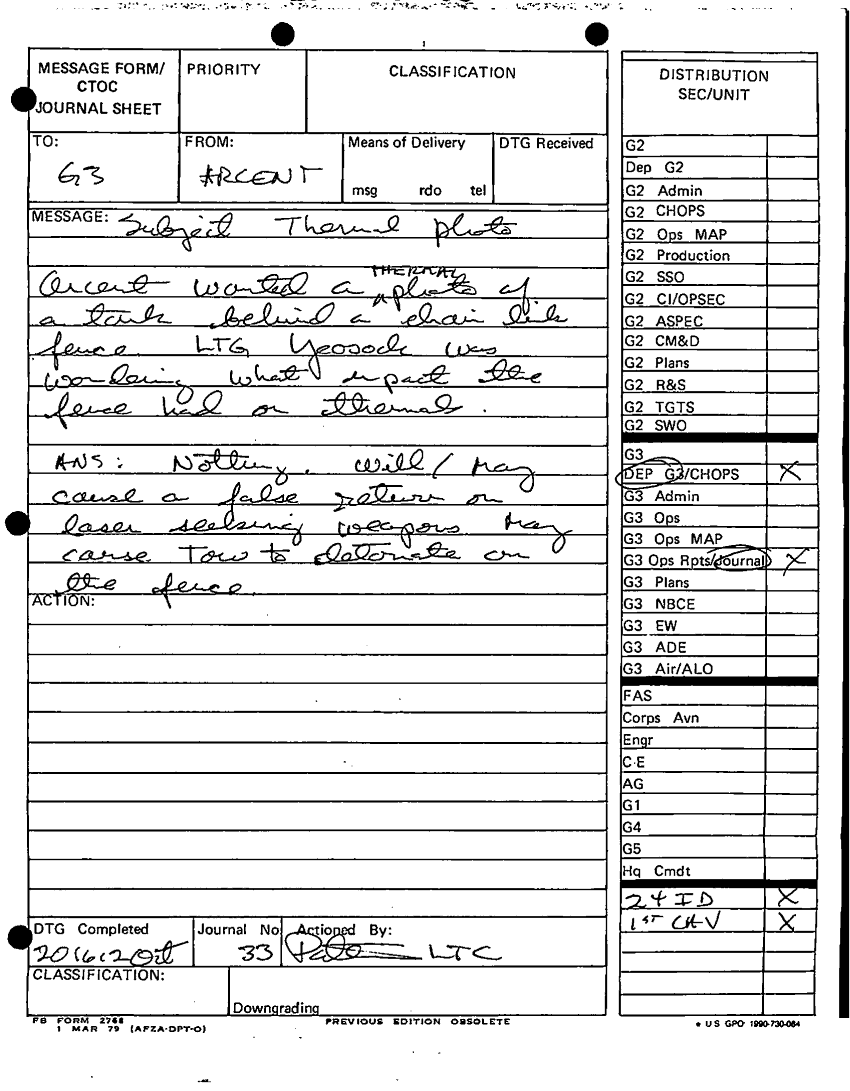 MESSAGE FORM/
CTOC
JOURNAL SHEET
PRIORITY
CLASSIFICATION
TO:
G3
FROM:
ARCENT
Means of Delivery
msg rdo tel
DTG Received
MESSAGE: Subject Thermal photo
THERMAL
Arcent wanted a photo of
a tank behind a chain link
fence LTG Yeosock was
wondering what impact the
fence had on thermal.
ANS: Nothing. will/may
cause a false return on
laser seeking weapons may
cause Tow to detonate on
the fence.
ACTION:
DTG Completed
Journal No
33
Actioned By:
LTC
CLASSIFICATION:
Downgrading
FB FORM 2768
1 MAR 79 (AFZA-DPT-O)
PREVIOUS EDITION OBSOLETE
DISTRIBUTION
SEC/UNIT
G2
Dep G2
G2 Admin
G2 CHOPS
G2 Ops MAP
G2 Production
G2 SSO
G2 CI/OPSEC
G2 ASPEC
G2 CM&D
G2 Plans
G2 R&S
G2 TGTS
G2 SWO
G3
DEP G3/CHOPS X
G3 Admin
G3 Ops
G3 Ops MAP
G3 Ops Rpts/Journal X
G3 Plans
G3 NBCE
G3 EW
G3 ADE
G3 Air/ALO
FAS
Corps Avn
Engr
C-E
AG
G1
G4
G5
Hq Cmdt
24 ID X
1ST CAV X
US GPO 1990-730-084